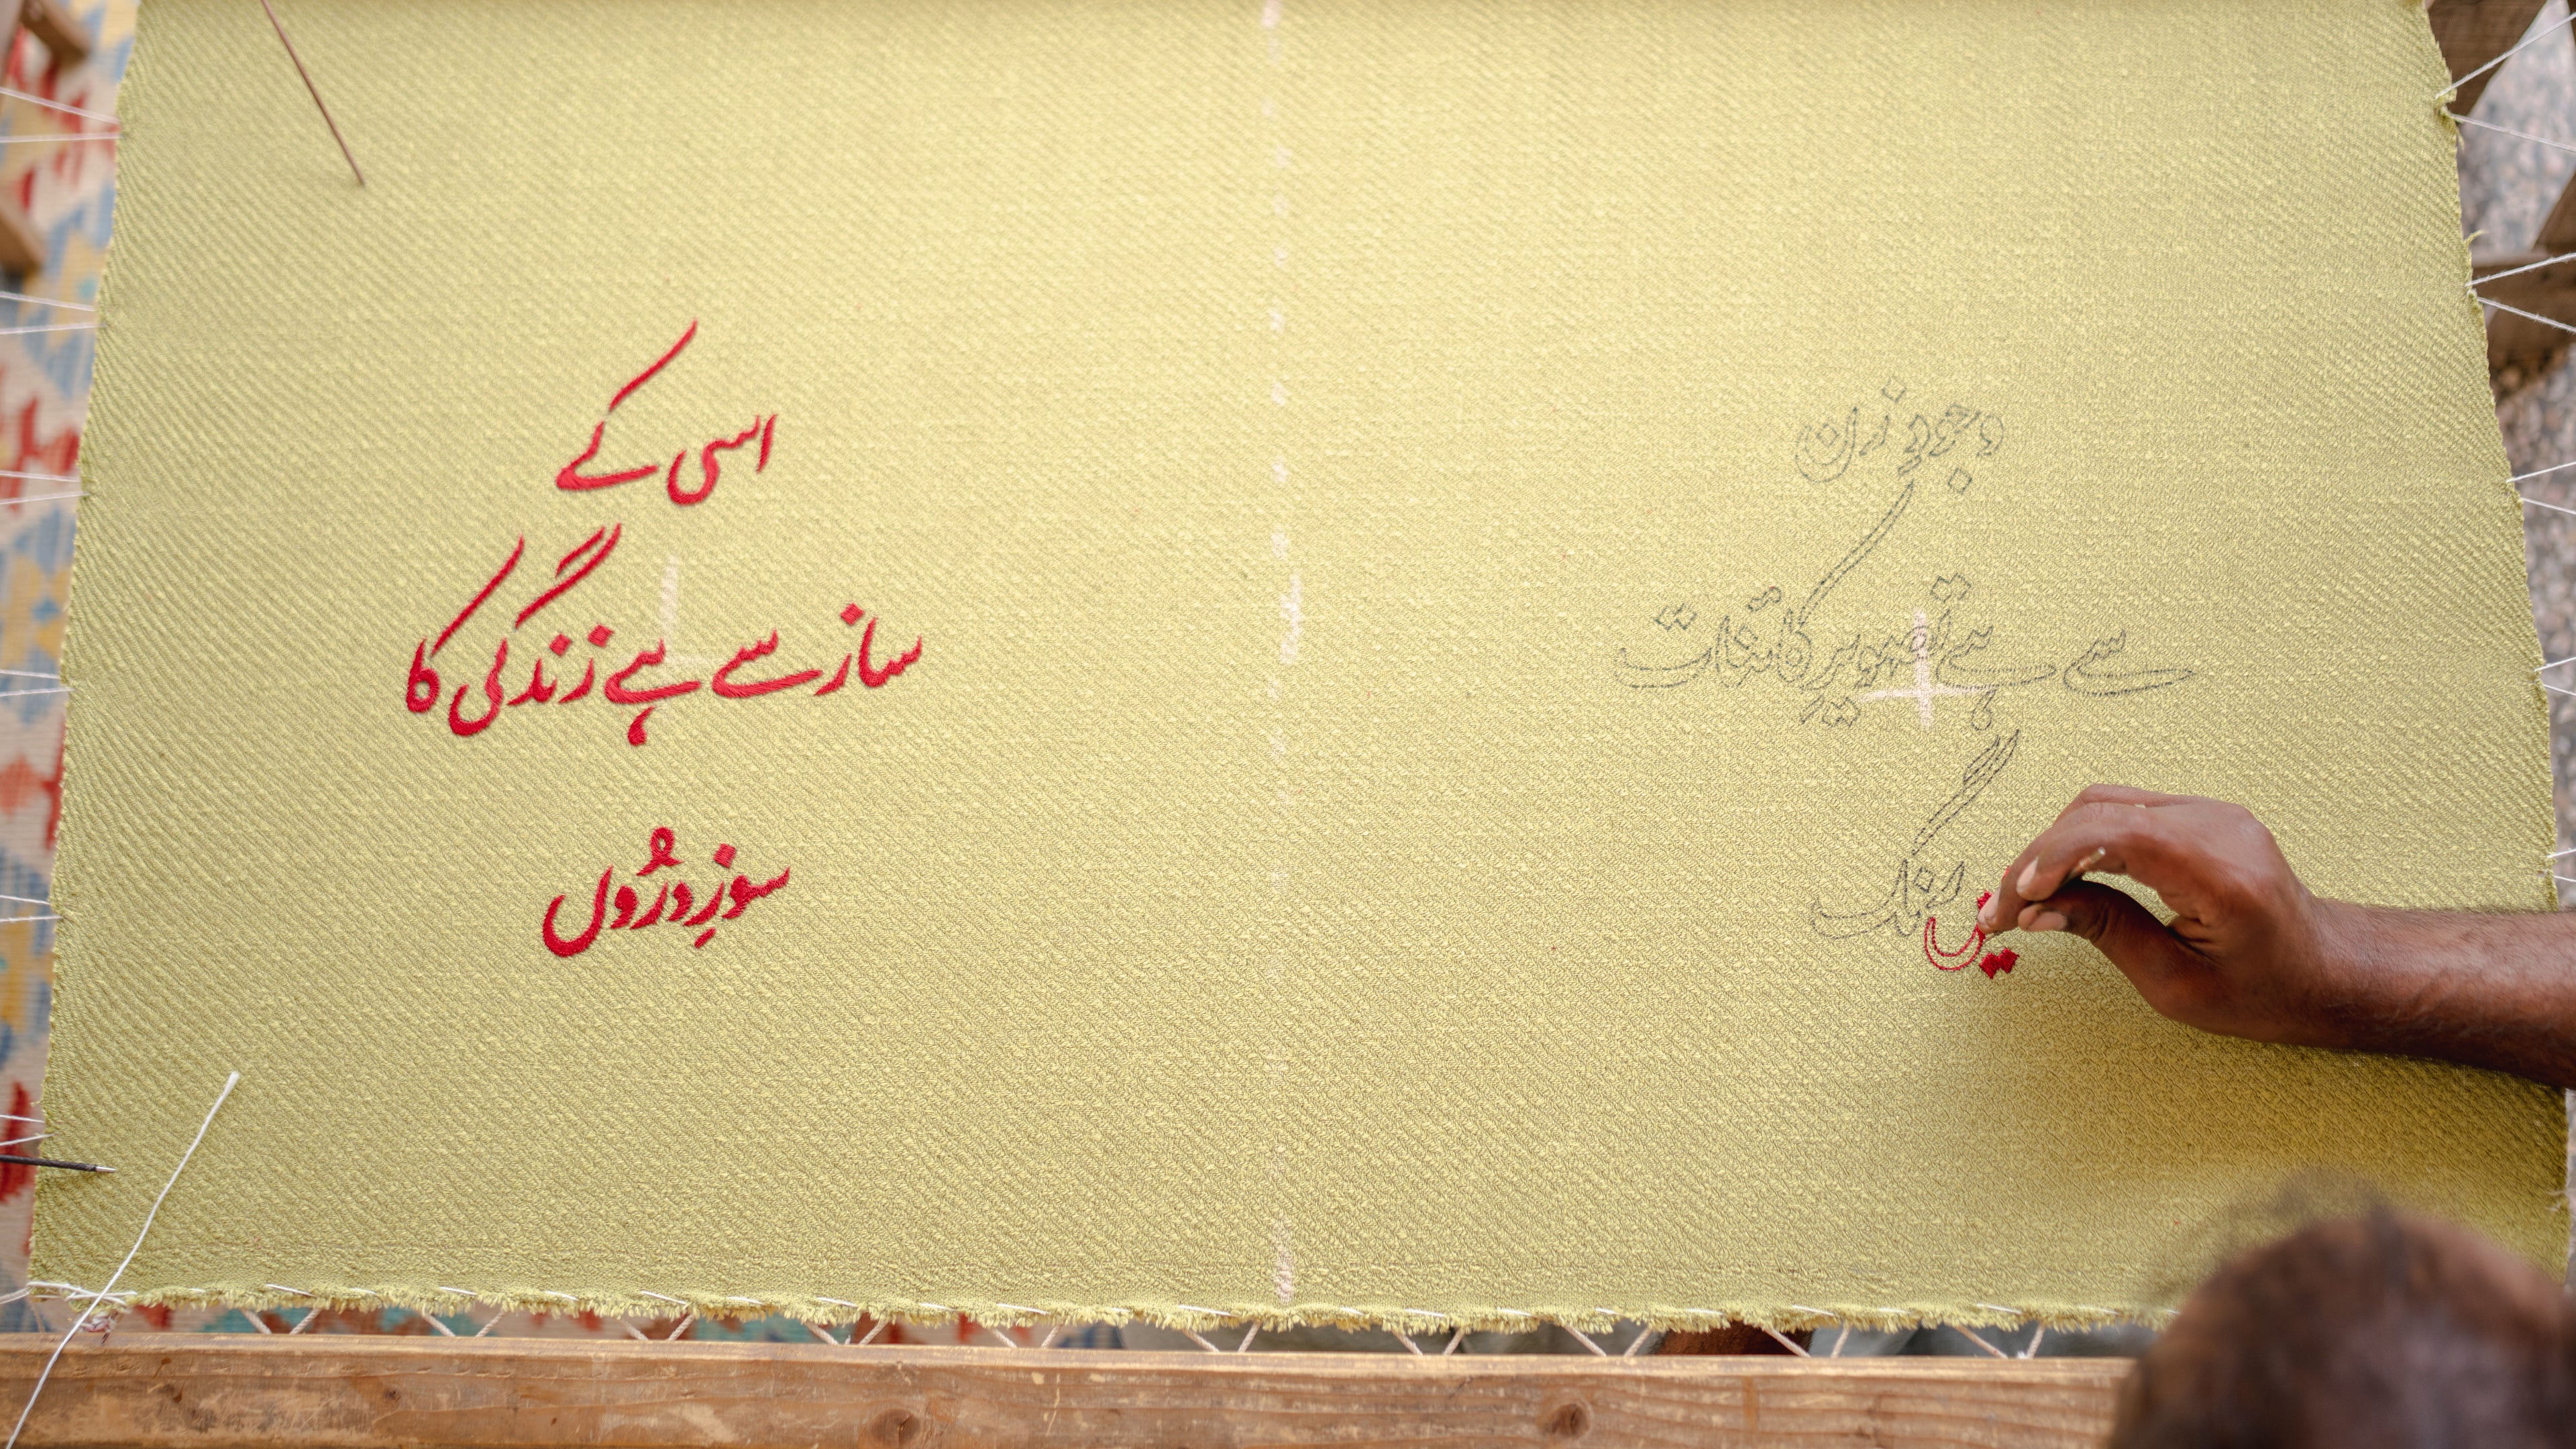 وجودِ زن
سے ہے تصویرِ کائنات
میں رنگ
اسی کے
ساز سے ہے زندگی کا
سوزِ درُوں